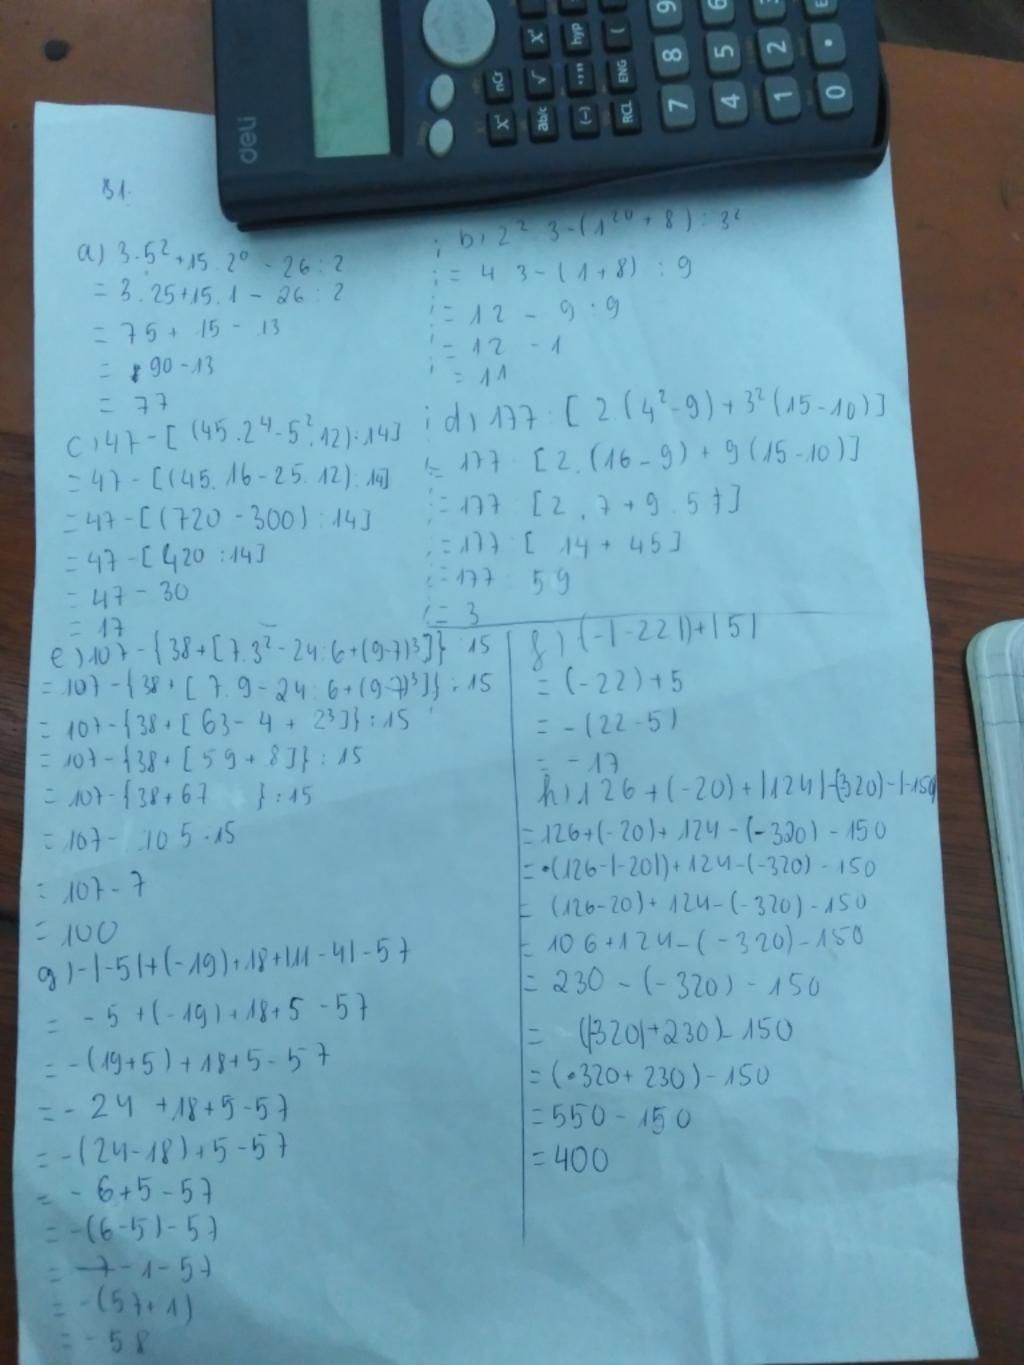 deli
X⁻¹ nCr
ab/c √ X²
(-) °'" hyp
RCL ENG (
7 8 9
4 5 6
1 2 3
0 •
B1.
a) 3.5² + 15.2⁰ - 26 : 2
= 3.25+15.1 - 26 : 2
= 75 + 15 - 13
= 90-13
= 77
b) 2² 3-(1²⁰ + 8) : 3²
= 4 3-(1+8) : 9
= 12 - 9 : 9
= 12 - 1
= 11
c) 47-[(45.2⁴-5².12):14]
= 47-[(45.16-25.12):14]
= 47-[(720-300):14]
= 47-[420:14]
= 47-30
= 17
d) 177:[2.(4²-9)+3²(15-10)]
= 177:[2.(16-9)+9(15-10)]
= 177 [2.7+9.57]
= 177:[14+45]
= 177:59
= 3
e) 107-{38+[7.3²-24:6+(9-7)³]}:15
= 107-{38+[7.9-24:6+(9-7)³]}:15
= 107-{38+[63-4+2³]}:15
= 107-{38+[59+8]}:15
= 107-{38+67 }:15
= 107- 105:15
= 107-7
= 100
f) (-|-22|)+|5|
= (-22)+5
= -(22-5)
= -17
g) -|-5|+(-19)+18+|11-4|-57
= -5+(-19)+18+5-57
= -(19+5)+18+5-57
= -24+18+5-57
= -(24-18)+5-57
= -6+5-57
= -(6-5)-57
= -1-57
= -(57+1)
= -58
h) 126+(-20)+|124|-(-320)-|-150|
= 126+(-20)+124-(-320)-150
= (126-|-20|)+124-(-320)-150
= (126-20)+124-(-320)-150
= 106+124-(-320)-150
= 230-(-320)-150
= (|320|+230)-150
= (320+230)-150
= 550-150
= 400